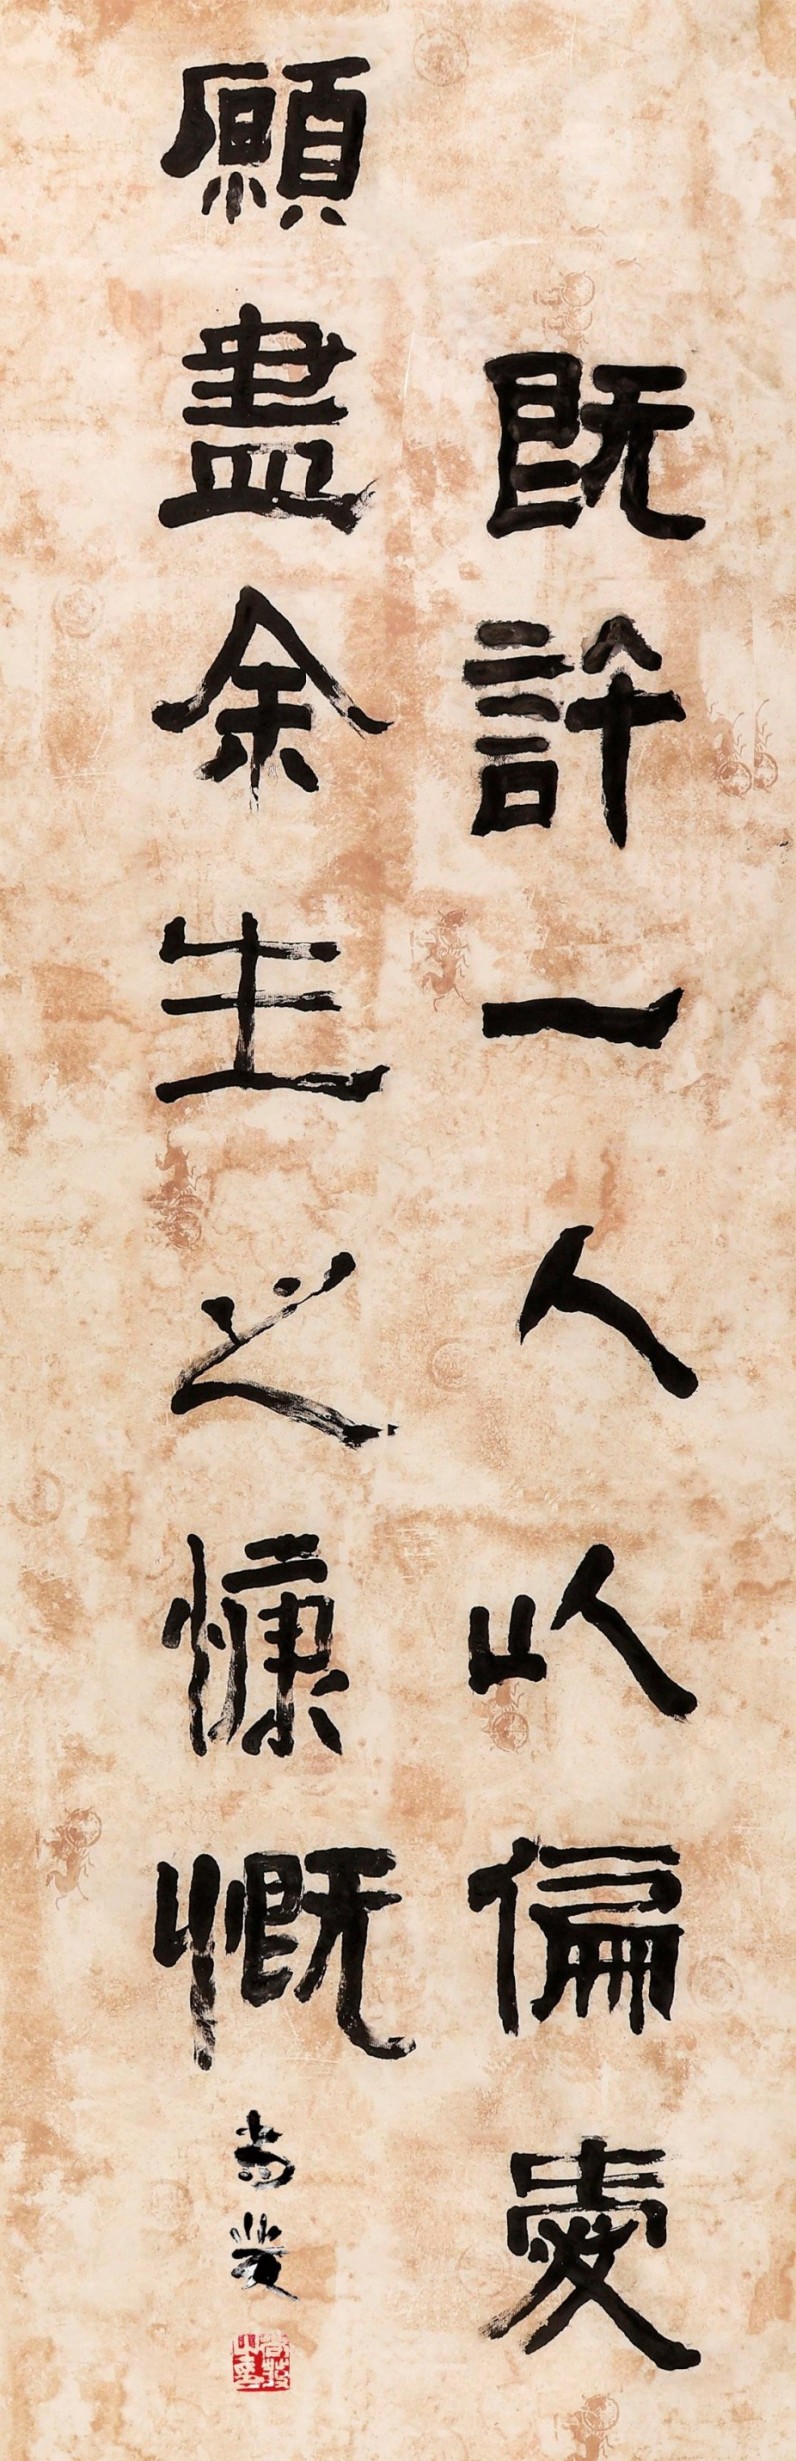 既許一人以偏愛
願盡余生之慷慨